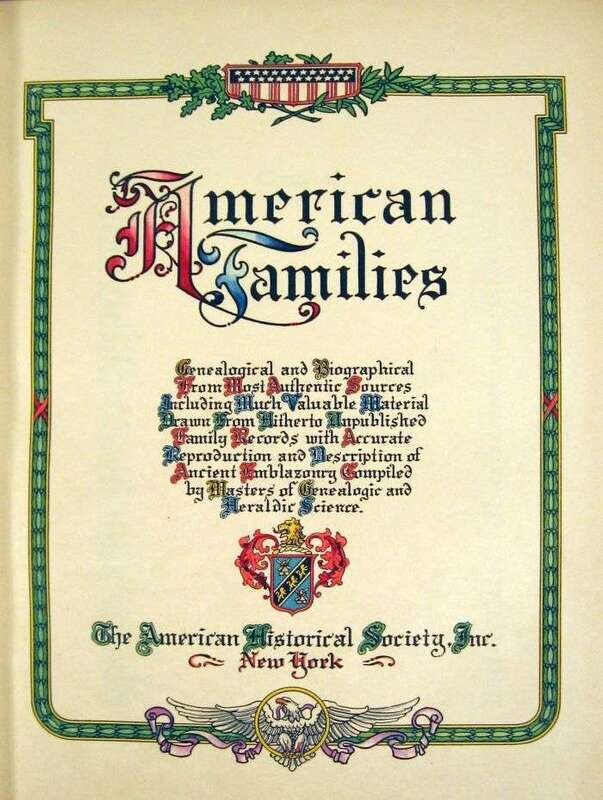 American
Families
Genealogical and Biographical
From Most Authentic Sources
Including Much Valuable Material
Drawn From Hitherto Unpublished
Family Records with Accurate
Reproduction and Description of
Ancient Emblazonry Compiled
by Masters of Genealogic and
Heraldic Science.
The American Historical Society, Inc.
New York